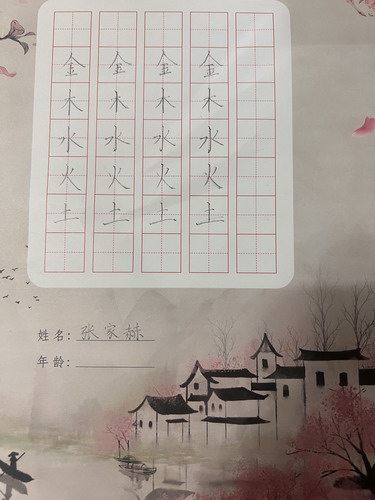 金 金 金 金
木 木 木 木
水 水 水 水
火 火 火 火
土 土 土 土
姓名：张家赫
年龄：